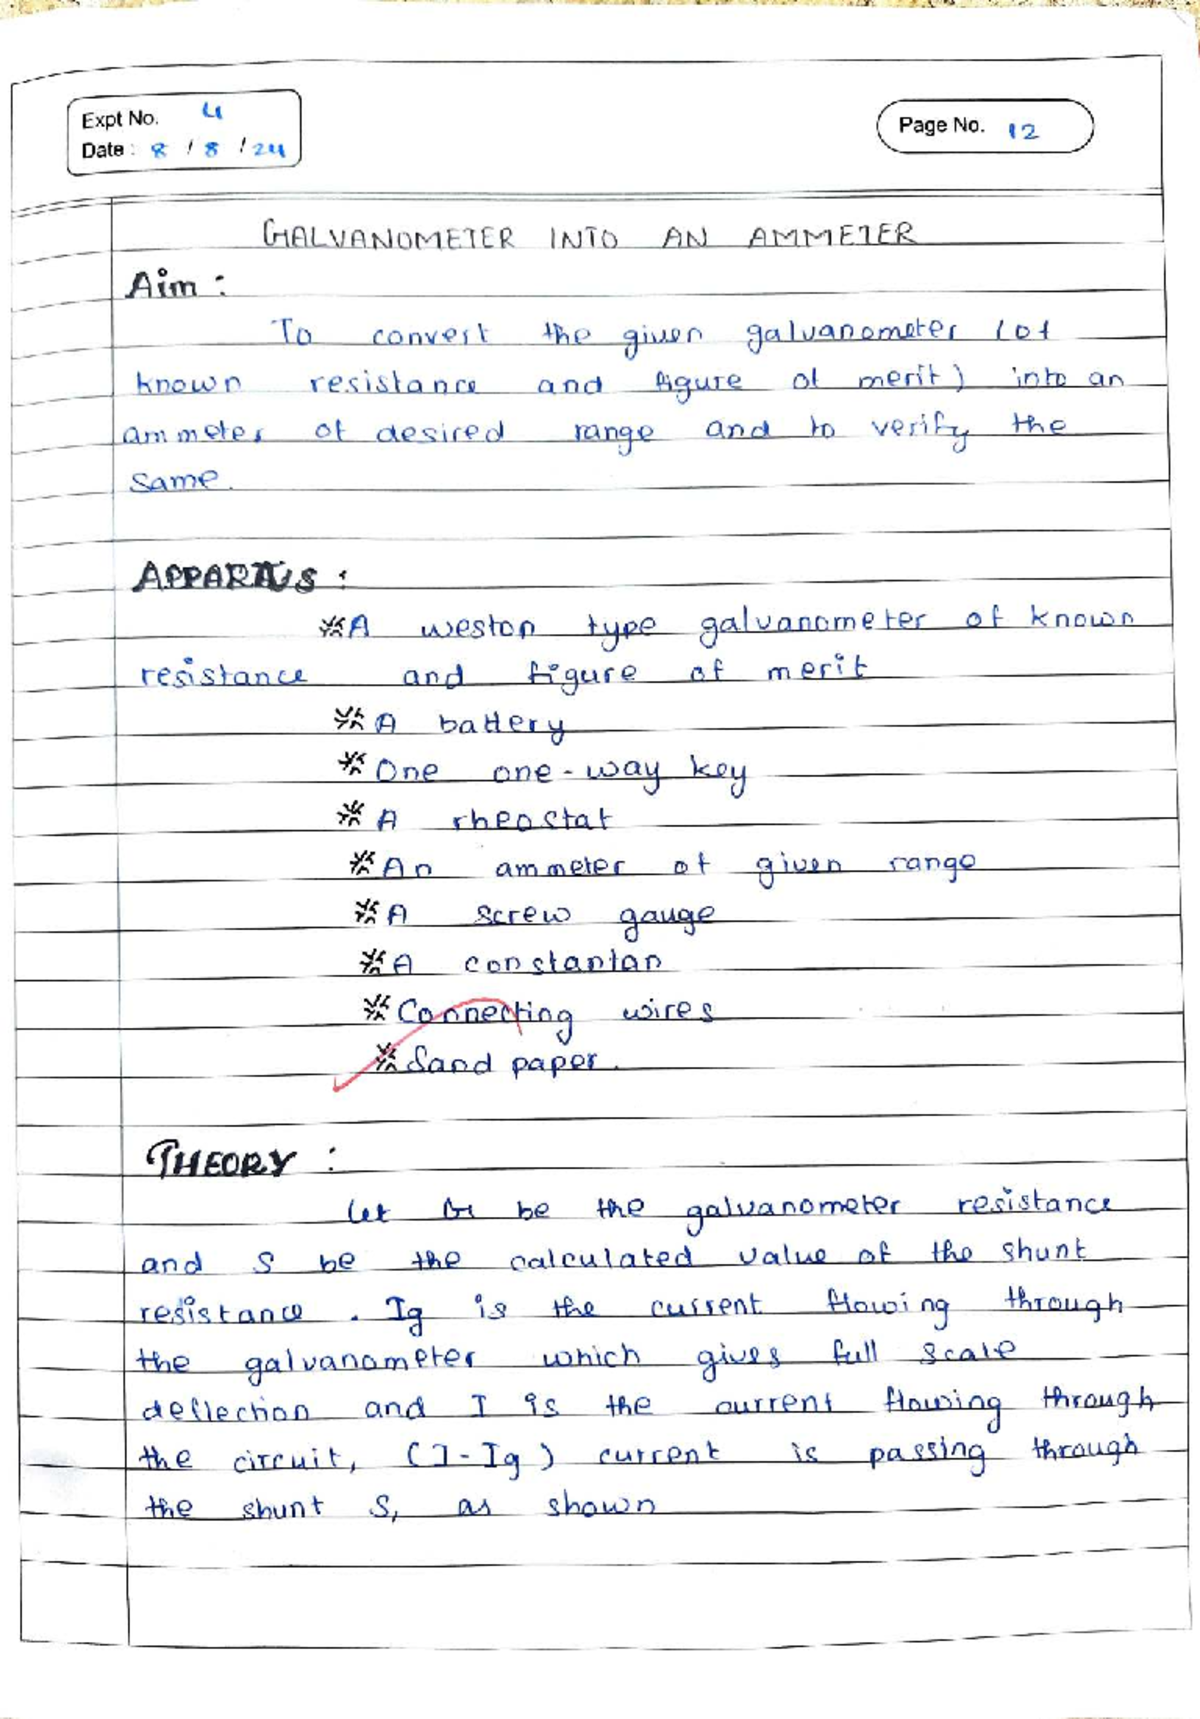 Expt No. 4
Date : 8 / 8 / 24
Page No. 12
GALVANOMETER INTO AN AMMETER
Aim :
To convert the given galvanometer (of
known resistance and figure of merit) into an
ammeter of desired range and to verify the
same.
APPARATUS :
* A weston type galvanometer of known
resistance and figure of merit
* A battery
* One one-way key
* A rheostat
* An ammeter of given range
* A screw gauge
* A constantan
* Connecting wires
* Sand paper.
THEORY :
Let G be the galvanometer resistance
and S be the calculated value of the shunt
resistance. Ig is the current flowing through
the galvanometer which gives full scale
deflection and I is the current flowing through
the circuit, (I-Ig) current is passing through
the shunt S, as shown